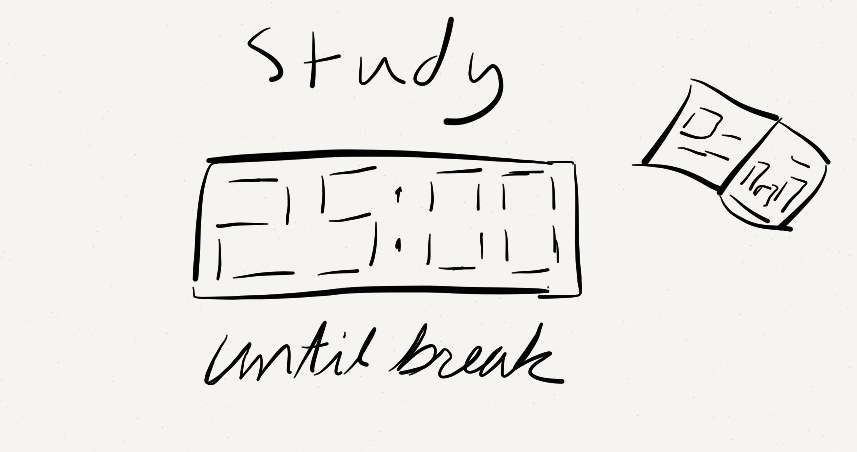 Study
25:00
until break